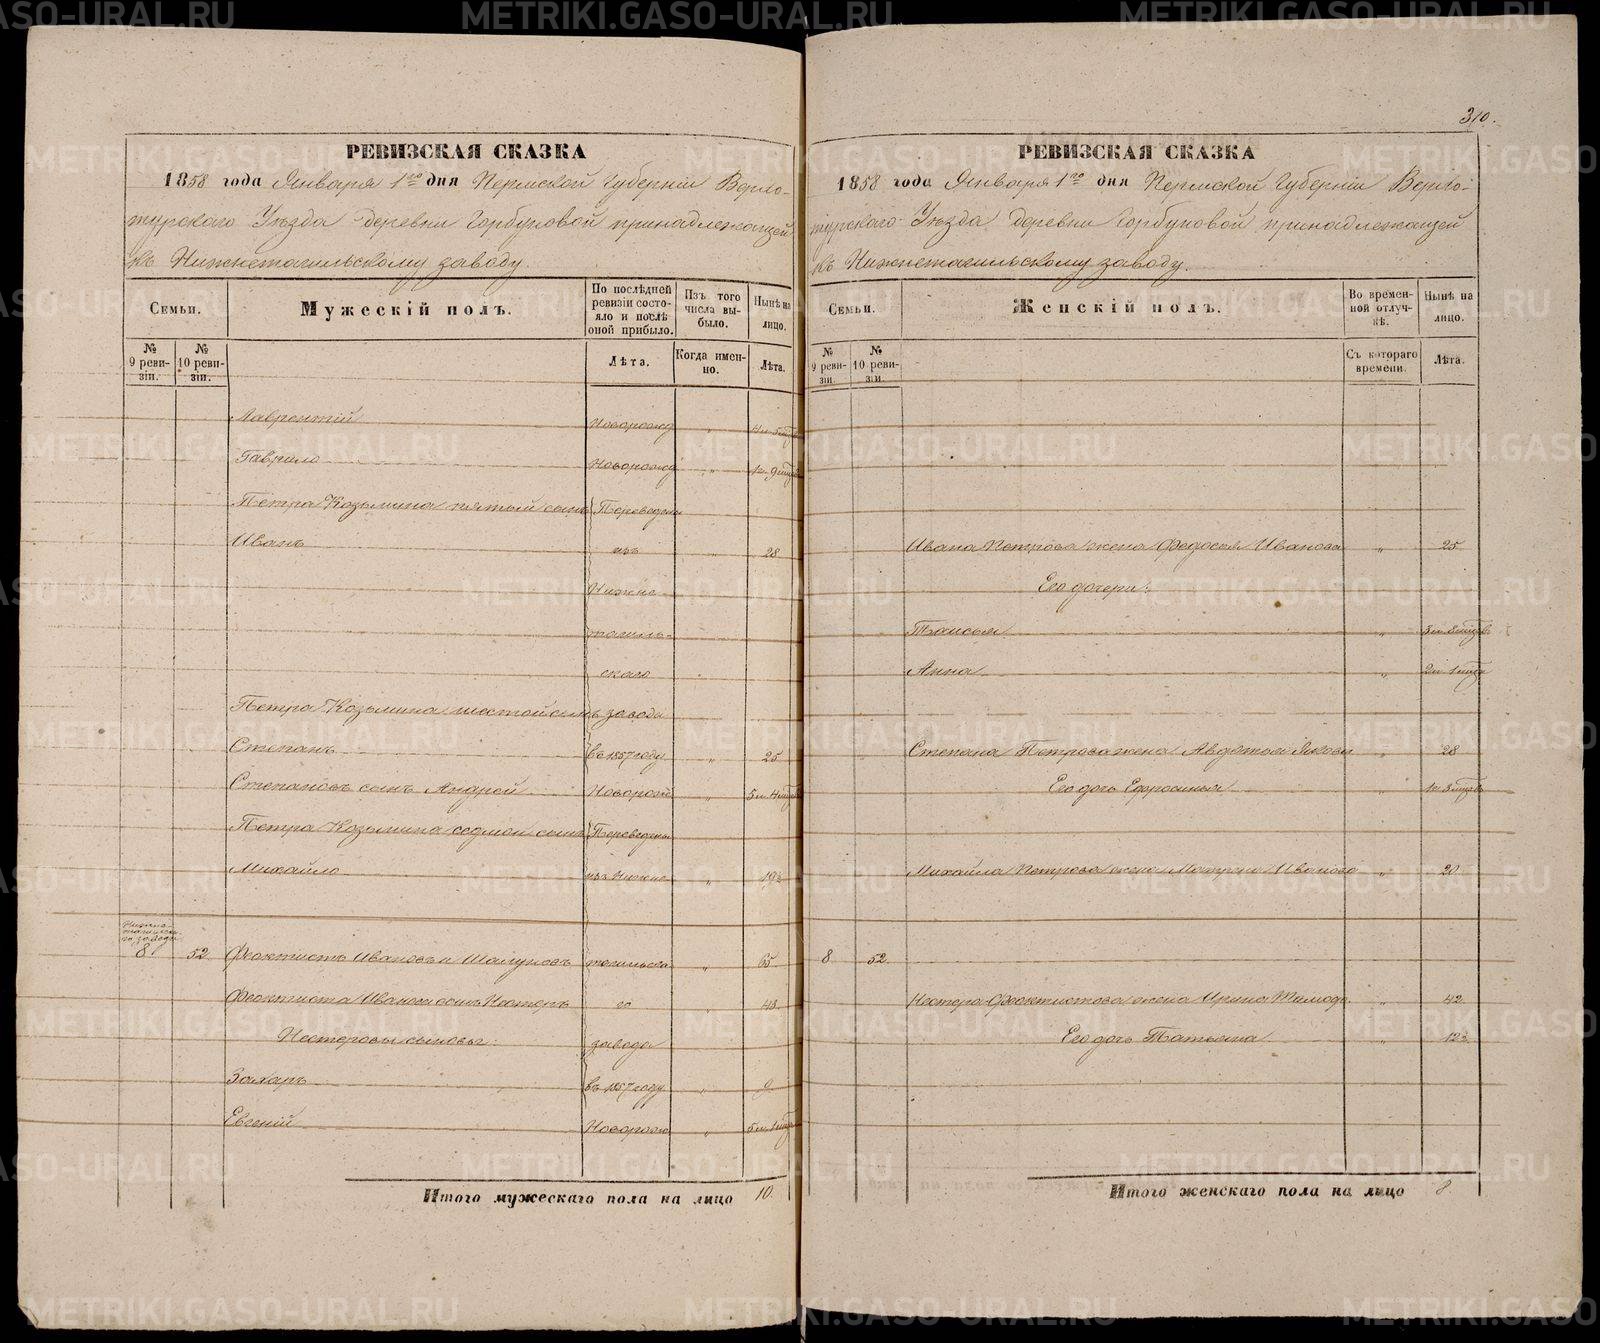 310.
РЕВИЗСКАЯ СКАЗКА
1858 года Января 1го дня Пермской Губерніи Верхо-
турского Уѣзда деревни Горбуновой принадлежащей
къ Нижнетагильскому заводу.
Семьи.
№ 9 ревизіи.
№ 10 ревизіи.
Мужескій полъ.
По послѣдней ревизіи состояло и послѣ оной прибыло.
Лѣта.
Изъ того числа выбыло.
Когда именно.
Нынѣ на лицо.
Лѣта.
Лаврентій Новорожд „
Гаврило Новорожд „
Петра Козьмина пятый сынъ Переведены
Иванъ изъ „ 28
Нижне
тагиль-
скаго
Петра Козьмина шестой сынъ завода
Степанъ въ 1857 году „ 25
Степановъ сынъ Андрей Новорож „
Петра Козьмина седмой сынъ Переведены
Михайло изъ Нижне „ 19½
Нижне-
тагильска-
го завода
8 52 Феоктистъ Ивановъ Шалуновъ тагильска „ 65
Феоктиста Иванова сынъ Нестеръ го „ 43
Нестеровы сыновья: завода
Захаръ въ 1857 году „ 9
Евгеній Новорож „
Итого мужескаго пола на лицо 10.
РЕВИЗСКАЯ СКАЗКА
1858 года Января 1го дня Пермской Губерніи Верхо-
турского Уѣзда деревни Горбуновой принадлежащей
къ Нижнетагильскому заводу.
Семьи.
№ 9 ревизіи.
№ 10 ревизіи.
Женскій полъ.
Во временной отлучкѣ.
Съ котораго времени.
Нынѣ на лицо.
Лѣта.
Ивана Петрова жена Федосья Иванова „ 25
Его дочери:
Таисья „
Анна „
Степана Петрова жена Авдотья Яковл „ 28
Его дочь Ефросинья „
Михайла Петрова жена Матрена Иванова „ 20
8 52.
Нестера Феоктистова жена Ирина Тимофе „ 42
Его дочь Татьяна „ 12½
Итого женскаго пола на лицо 8
METRIKI.GASO-URAL.RU